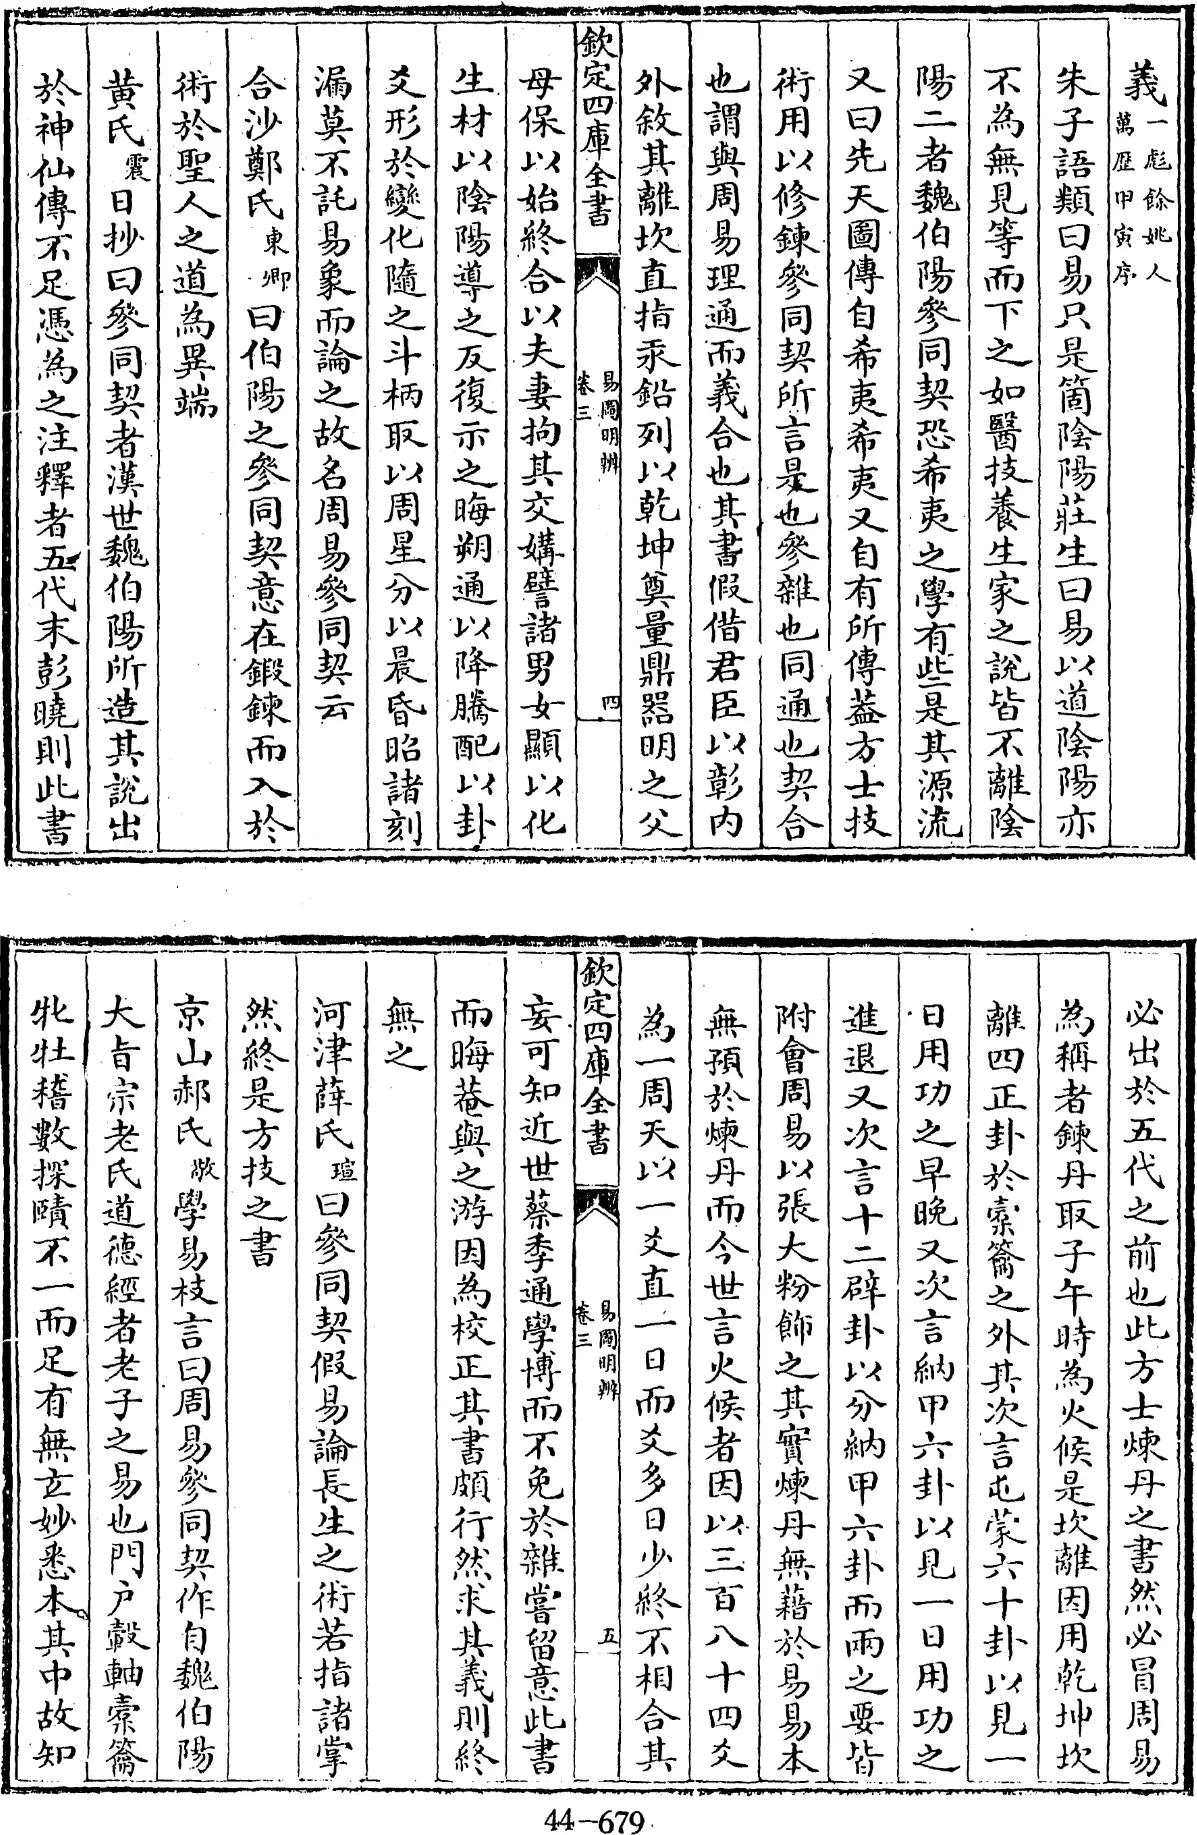 義一彪餘姚人萬歴甲寅序
朱子語類曰易只是箇陰陽莊生曰易以道陰陽亦
不為無見等而下之如醫技養生家之說皆不離陰
陽二者魏伯陽參同契恐希夷之學有些是其源流
又曰先天圖傳自希夷希夷又自有所傳蓋方士技
術用以修鍊參同契所言是也參雜也同通也契合
也謂與周易理通而義合也其書假借君臣以彰内
外敘其離坎直指汞鉛列以乾坤奠量鼎器明之父
欽定四庫全書 易圖明辨 卷三 四
母保以始終合以夫妻拘其交媾譬諸男女顯以化
生材以陰陽導之反復示之晦朔通以降騰配以卦
爻形於變化隨之斗柄取以周星分以晨昏昭諸刻
漏莫不託易象而論之故名周易參同契云
合沙鄭氏東卿曰伯陽之參同契意在鍛鍊而入於
術於聖人之道為異端
黄氏震日抄曰參同契者漢世魏伯陽所造其說出
於神仙傳不足憑為之注釋者五代末彭曉則此書
必出於五代之前也此方士煉丹之書然必冒周易
為稱者鍊丹取子午時為火候是坎離因用乾坤坎
離四正卦於橐籥之外其次言屯蒙六十卦以見一
日用功之早晚又次言納甲六卦以見一日用功之
進退又次言十二辟卦以分納甲六卦而兩之要皆
附會周易以張大粉飾之其實煉丹無藉於易易本
無預於煉丹而今世言火候者因以三百八十四爻
為一周天以一爻直一日而爻多日少終不相合其
欽定四庫全書 易圖明辨 卷三 五
妄可知近世蔡季通學博而不免於雜嘗留意此書
而晦菴與之游因為校正其書頗行然求其義則終
無之
河津薛氏瑄曰參同契假易論長生之術若指諸掌
然終是方技之書
京山郝氏敬學易枝言曰周易參同契作自魏伯陽
大旨宗老氏道德經者老子之易也門户轂軸橐籥
牝牡稽數探賾不一而足有無玄妙悉本其中故知
44-679